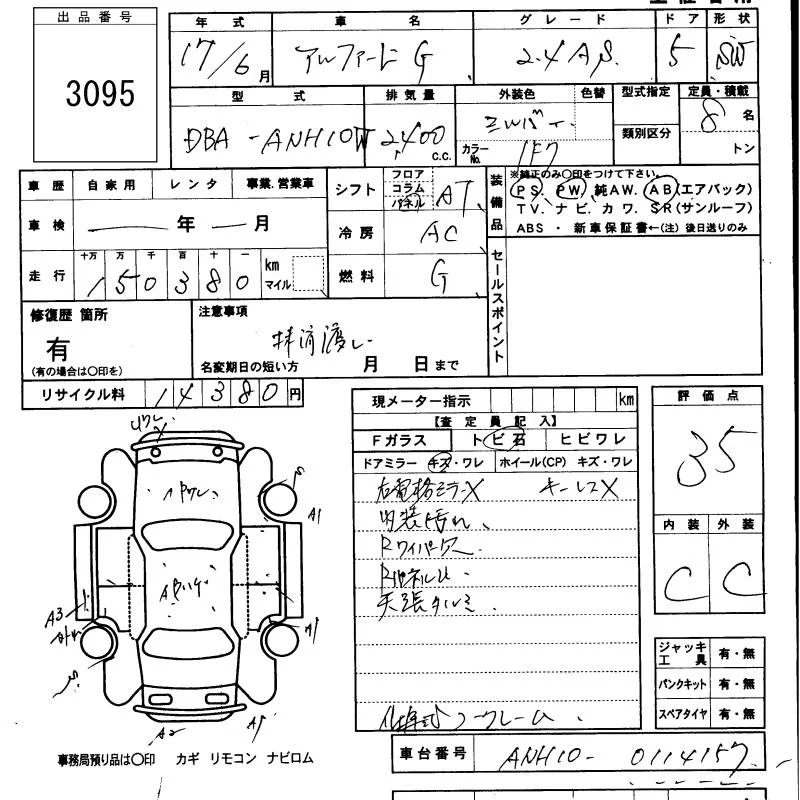 出品番号
3095
年式 車名 グレード ドア 形状
17/6月 アルファード G 2.4 AS 5 SW
型式 排気量 外装色 色替 型式指定 定員・積載
DBA-ANH10W 2400 C.C. カラーNo. 1F7 類別区分 8名
トン
車歴 自家用 レンタ 事業.営業車
車検 年 月
走行 十万 万 千 百 十 一 km マイル
150380
シフト フロア コラム パネル AT
冷房 AC
燃料 G
装備品
※純正のみ〇印をつけて下さい。
PS. PW. 純AW. AB(エアバック)
TV. ナビ. カワ. SR(サンルーフ)
ABS ・ 新車保証書←(注) 後日送りのみ
セールスポイント
修復歴 箇所
有
(有の場合は〇印を)
注意事項
抹消渡し
名変期日の短い方 月 日まで
リサイクル料 14380円
現メーター指示 km
【査定員記入】
Fガラス トビ石 ヒビワレ
ドアミラー キズ・ワレ ホイール(CP) キズ・ワレ
右電格ミラーX キーレスX
内装汚れ、
Rワイパー欠
天張タルミ
フクレーム、
評価点
35
内装 外装
C C
ジャッキ工具 有・無
パンクキット 有・無
スペアタイヤ 有・無
ワレ
X
A1
A3
A1
A2
事務局預り品は〇印 カギ リモコン ナビロム
車台番号 ANH10-0114157